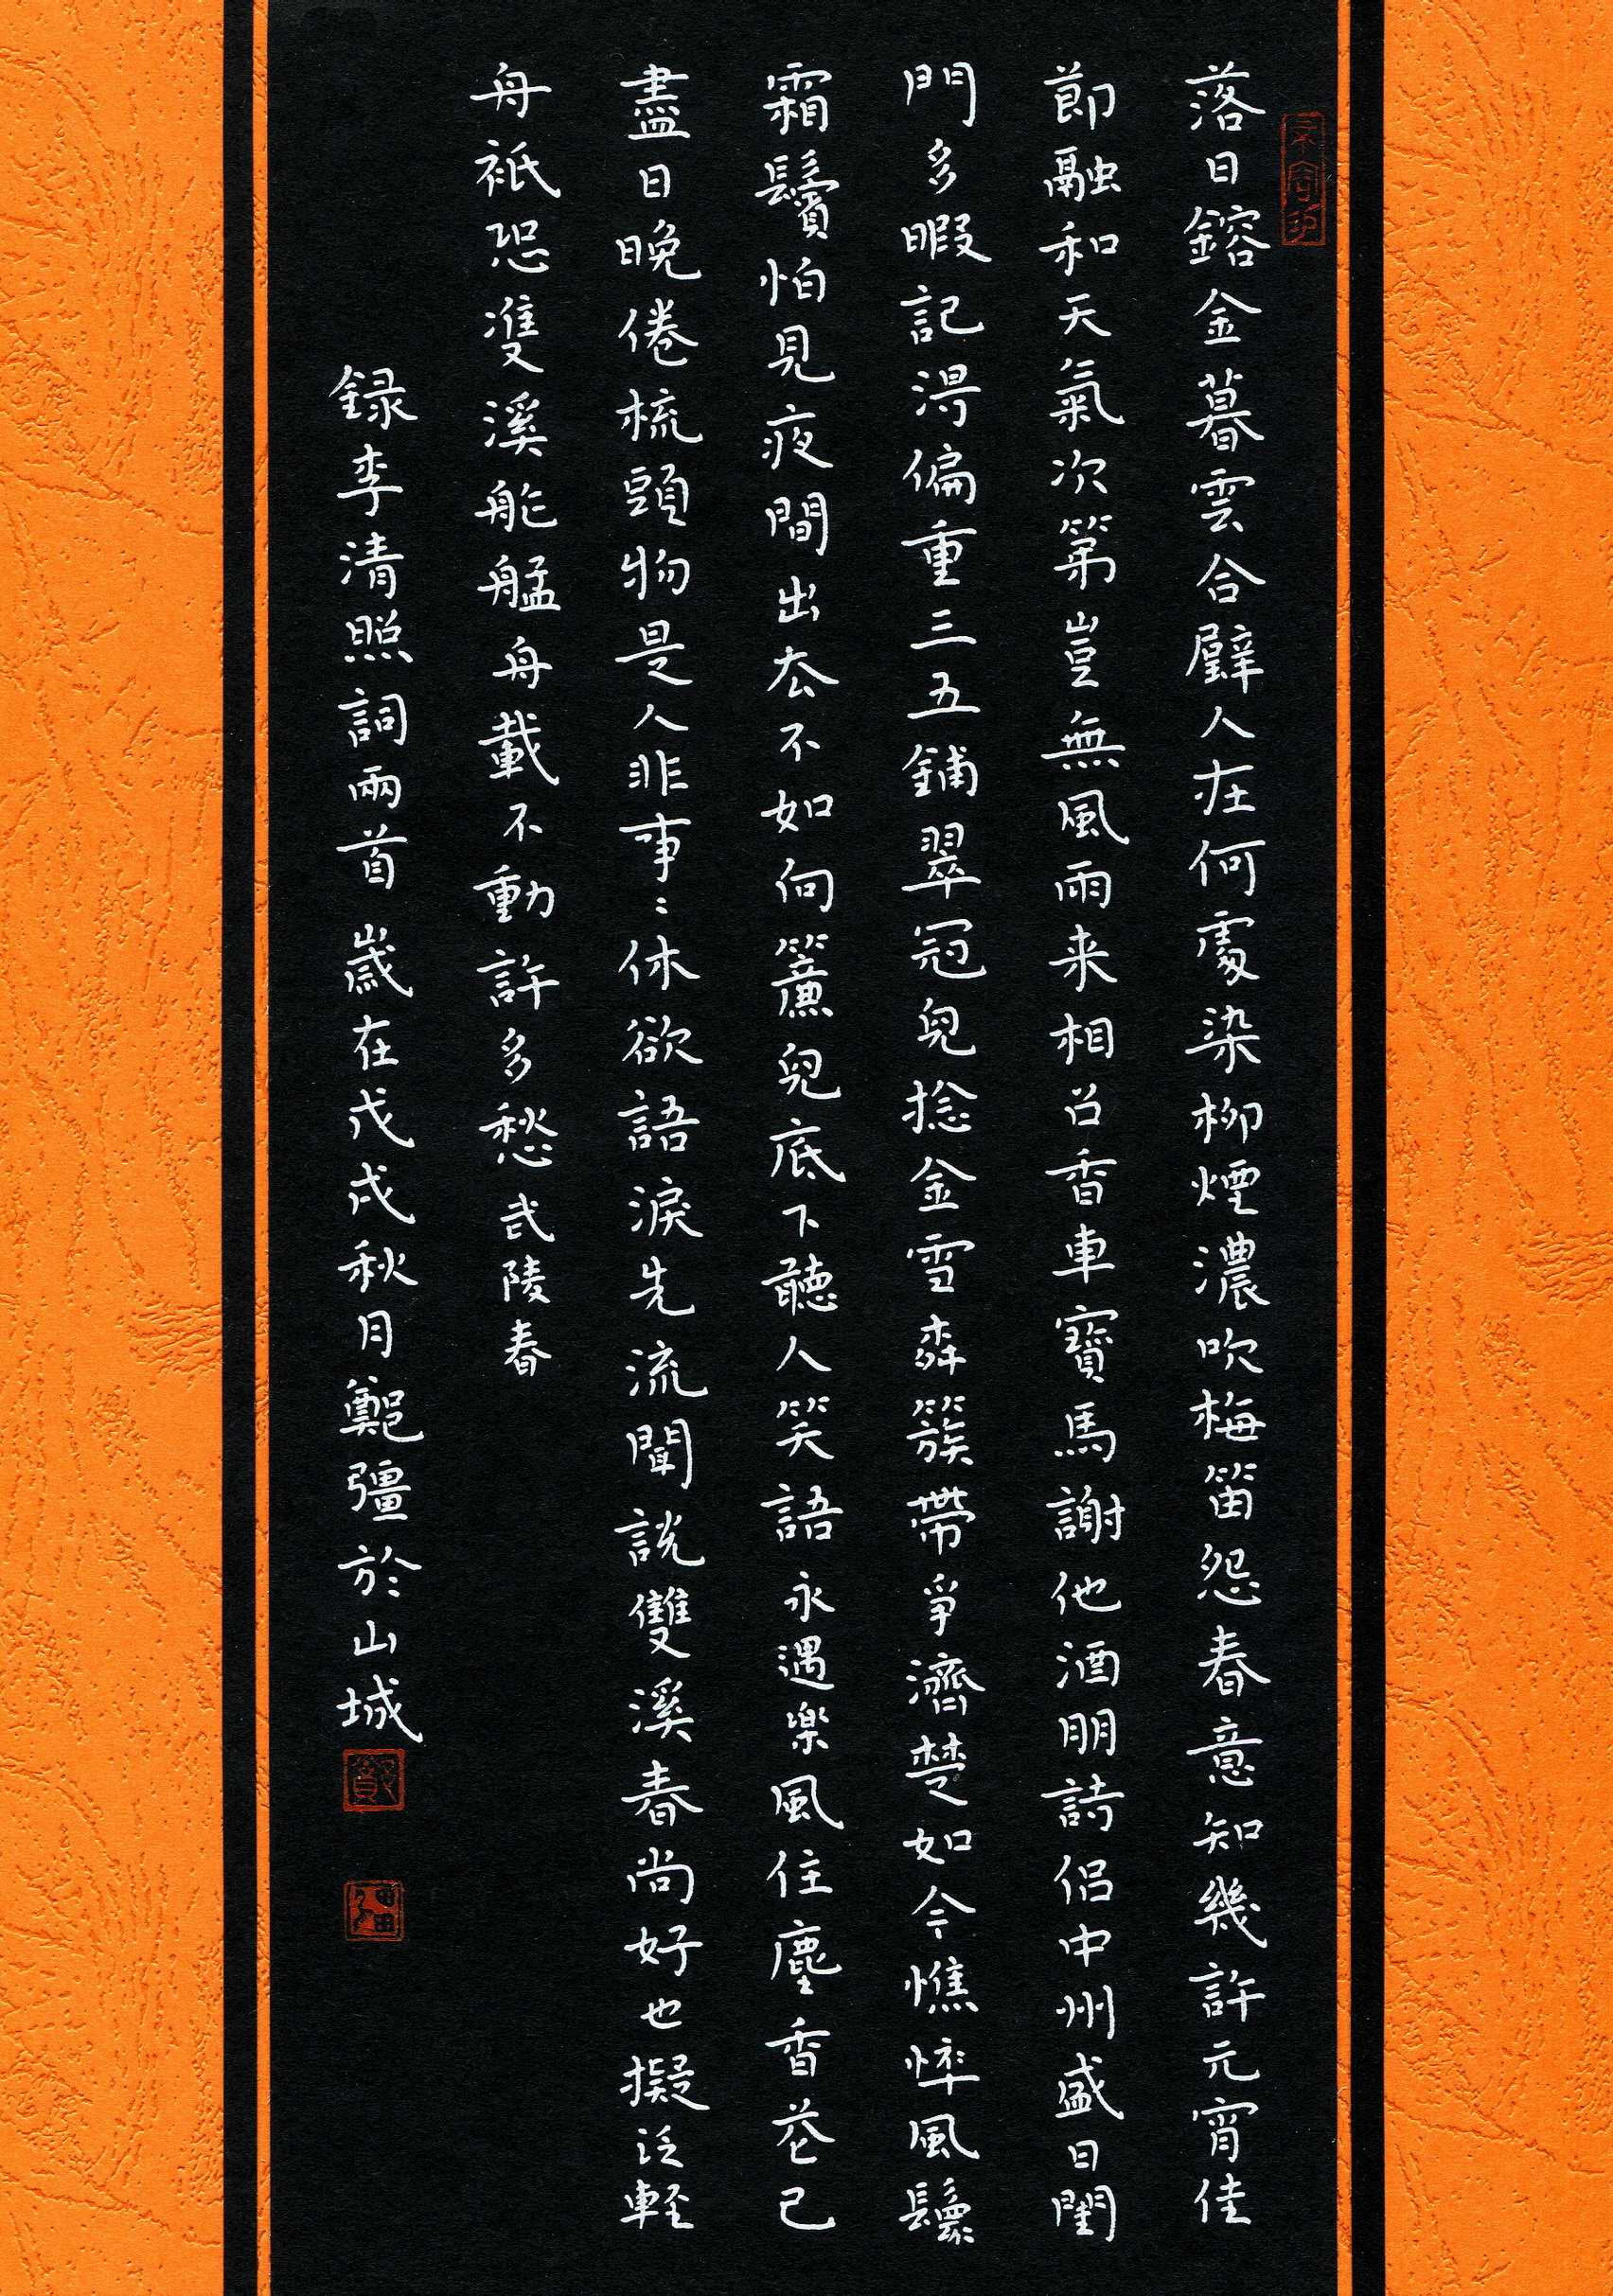 落日鎔金暮雲合璧人在何處染柳煙濃吹梅笛怨春意知幾許元宵佳
節融和天氣次第豈無風雨来相召香車寶馬謝他酒朋詩侶中州盛日閨
門多暇記淂偏重三五鋪翠冠兒捻金雪桺簇帶爭濟楚如今憔悴風鬟
霜鬢怕見夜間出去不如向簾兒底下聽人笑語永遇樂風住塵香花已
盡日晚倦梳頭物是人非事〻休欲語淚先流聞説雙溪春尚好也擬泛輕
舟衹恐雙溪舴艋舟載不動許多愁武陵春
録李清照詞兩首歲在戊戌秋月鄭彊於山城